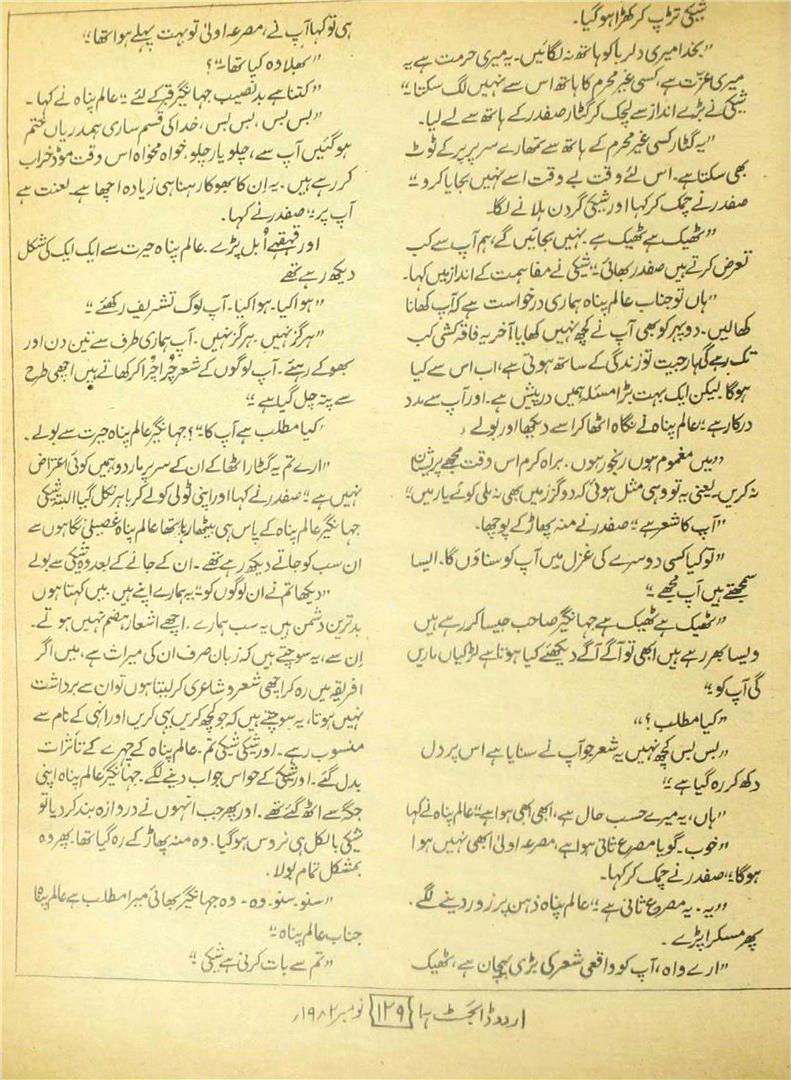 شیکی تڑپ کر کھڑا ہو گیا۔
”بخدا میری دلربا کو ہاتھ نہ لگائیں۔ یہ میری حرمت ہے یہ
میری عزّت ہے، کسی غیر محرم کا ہاتھ اس سے نہیں لگ سکتا“
شیکی نے بڑے انداز سے لپک کر گٹار صفدر کے ہاتھ سے لے لیا۔
”یہ گٹار کسی غیر محرم کے ہاتھ سے تمہارے سر پر پر کے ٹوٹ
بھی سکتا ہے۔ اس لئے وقت بے وقت اسے نہیں بجایا کرو“
صفدر نے چمک کر کہا اور شیکی گردن ہلانے لگا۔
”ٹھیک ہے ٹھیک ہے۔ نہیں بجائیں گے، ہم آپ سے کب
تعرض کرتے ہیں صفدر بھائی“ شیکی نے مفاہمت کے انداز میں کہا۔
”ہاں تو جناب عالم پناہ ہماری درخواست ہے کہ آپ کھانا
کھالیں۔ دوپہر کو بھی آپ نے کچھ نہیں کھایا آخر یہ فاقہ کشی کب
تک رہے گی ہار جیت تو زندگی کے ساتھ ہوتی ہے، اب اس سے کیا
ہوگا۔ لیکن ایک بہت بڑا مسئلہ ہمیں درپیش ہے۔ اور آپ سے مدد
درکار ہے“ عالم پناہ نے نگاہ اٹھا کر اسے دیکھا اور بولے،
”میں مغموم ہوں رنجور ہوں۔ براہ کرم اس وقت مجھے پریشان
نہ کریں۔ یعنی یہ تو وہی مثل ہوئی کہ دو گز زمیں بھی نہ ملی کوئے یار میں“
”آپ کا شعر ہے“ صفدر نے منہ پھاڑ کے پوچھا۔
”تو کیا کسی دوسرے کی غزل میں آپ کو سناؤں گا۔ ایسا
سمجھتے ہیں آپ مجھے“
”ٹھیک ہے ٹھیک ہے جہانگیر صاحب جیسا کر رہے ہیں
ویسا بھر رہے ہیں ابھی تو آگے آگے دیکھئے کیا ہوتا ہے لڑکیاں ماریں
گی آپ کو“
”کیا مطلب؟“
”بس بس کچھ نہیں یہ شعر جو آپ نے سنایا ہے اس پر دل
دکھ کر رہ گیا ہے“
”ہاں، یہ میرے حسب حال ہے، ابھی ابھی ہوا ہے“ عالم پناہ نے کہا
”خوب۔ گویا مصرع ثانی ہوا ہے، مصرعہ اولیٰ ابھی نہیں ہوا
ہوگا“ صفدر نے چمک کر کہا۔
”یہ۔ یہ مصرع ثانی ہے“ عالم پناہ ذہن پر زور دینے لگے۔
پھر مسکرا پڑے۔
”ارے واہ، آپ کو واقعی شعر کی بڑی پہچان ہے، ٹھیک
ہی تو کہا آپ نے، مصرعہ اولیٰ تو بہت پہلے ہوا تھا“
”بھلا وہ کیا تھا“؟
”کتنا ہے بد نصیب جہانگیر قبر کے لئے“ عالم پناہ نے کہا۔
”بس بس، بس بس، خدا کی قسم ساری ہمدریاں ختم
ہوگئیں آپ سے، چلو یار چلو، خواہ مخواہ اس وقت موڈ خراب
کر رہے ہیں۔ یہ ان کا بھوکا رہنا ہی زیادہ اچھا ہے۔ لعنت ہے
آپ پر“ صفدر نے کہا۔
اور قہقہے اُبل پڑے۔ عالم پناہ حیرت سے ایک ایک کی شکل
دیکھ رہے تھے
”ہوا کیا۔ ہوا کیا۔ آپ لوگ تشریف رکھئے“
”ہرگز نہیں۔ ہرگز نہیں۔ آپ ہماری طرف سے تین دن اور
بھوکے رہئے۔ آپ لوگوں کے شعر چُرا چُرا کر کھاتے ہیں اچھی طرح
سے پتہ چل گیا ہے“
”کیا مطلب ہے آپ کا“؟ جہانگیر عالم پناہ حیرت سے بولے۔
”ارے تم یہ گٹار اٹھا کے ان کے سر پر مار دو ہمیں کوئی اعتراض
نہیں ہے“ صفدر نے کہا اور اپنی ٹولی کو لے کر باہر نکل گیا البتہ شیکی
جہانگیر عالم پناہ کے پاس ہی بیٹھا رہا تھا عالم پناہ غصیلی نگاہوں سے
ان سب کو جاتے دیکھ رہے تھے۔ ان کے جانے کے بعد وہ شیکی سے بولے
”دیکھا تم نے ان لوگوں کو“ یہ ہمارے اپنے ہیں۔ میں کہتا ہوں
بدترین دشمن ہیں یہ سب ہمارے۔ اچھے اشعار ہضم نہیں ہوتے۔
اِن سے، یہ سوچتے ہیں کہ زبان صرف ان کی میراث ہے، میں اگر
افریقہ میں رہ کر اچھی شعر و شاعری کر لیتا ہوں تو ان سے برداشت
نہیں ہوتا، یہ سوچتے ہیں کہ جو کچھ کریں یہی کریں اور انہی کے نام سے
منسوب رہے۔ اور شیکی شیکی تم۔ عالم پناہ کے چہرے کے تأثرات
بدل گئے۔ اور شیکی کے حواس جواب دینے لگے۔ جہانگیر عالم پناہ اپنی
جگہ سے اٹھ گئے تھے۔ اور پھر جب انہوں نے دروازہ بند کر دیا تو
شیکی بالکل ہی نروس ہوگیا۔ وہ منہ پھاڑ کے رہ گیا تھا۔ پھر وہ
بمشکل تمام بولا۔
”سنو۔ سنو۔ وہ۔ وہ جہانگیر بھائی میرا مطلب ہے عالم پناہ
جناب عالم پناہ“
”تم سے بات کرنی ہے شیکی“
اردو ڈائجسٹ ہما ۱۲۹ نومبر ۱۹۸۲ء